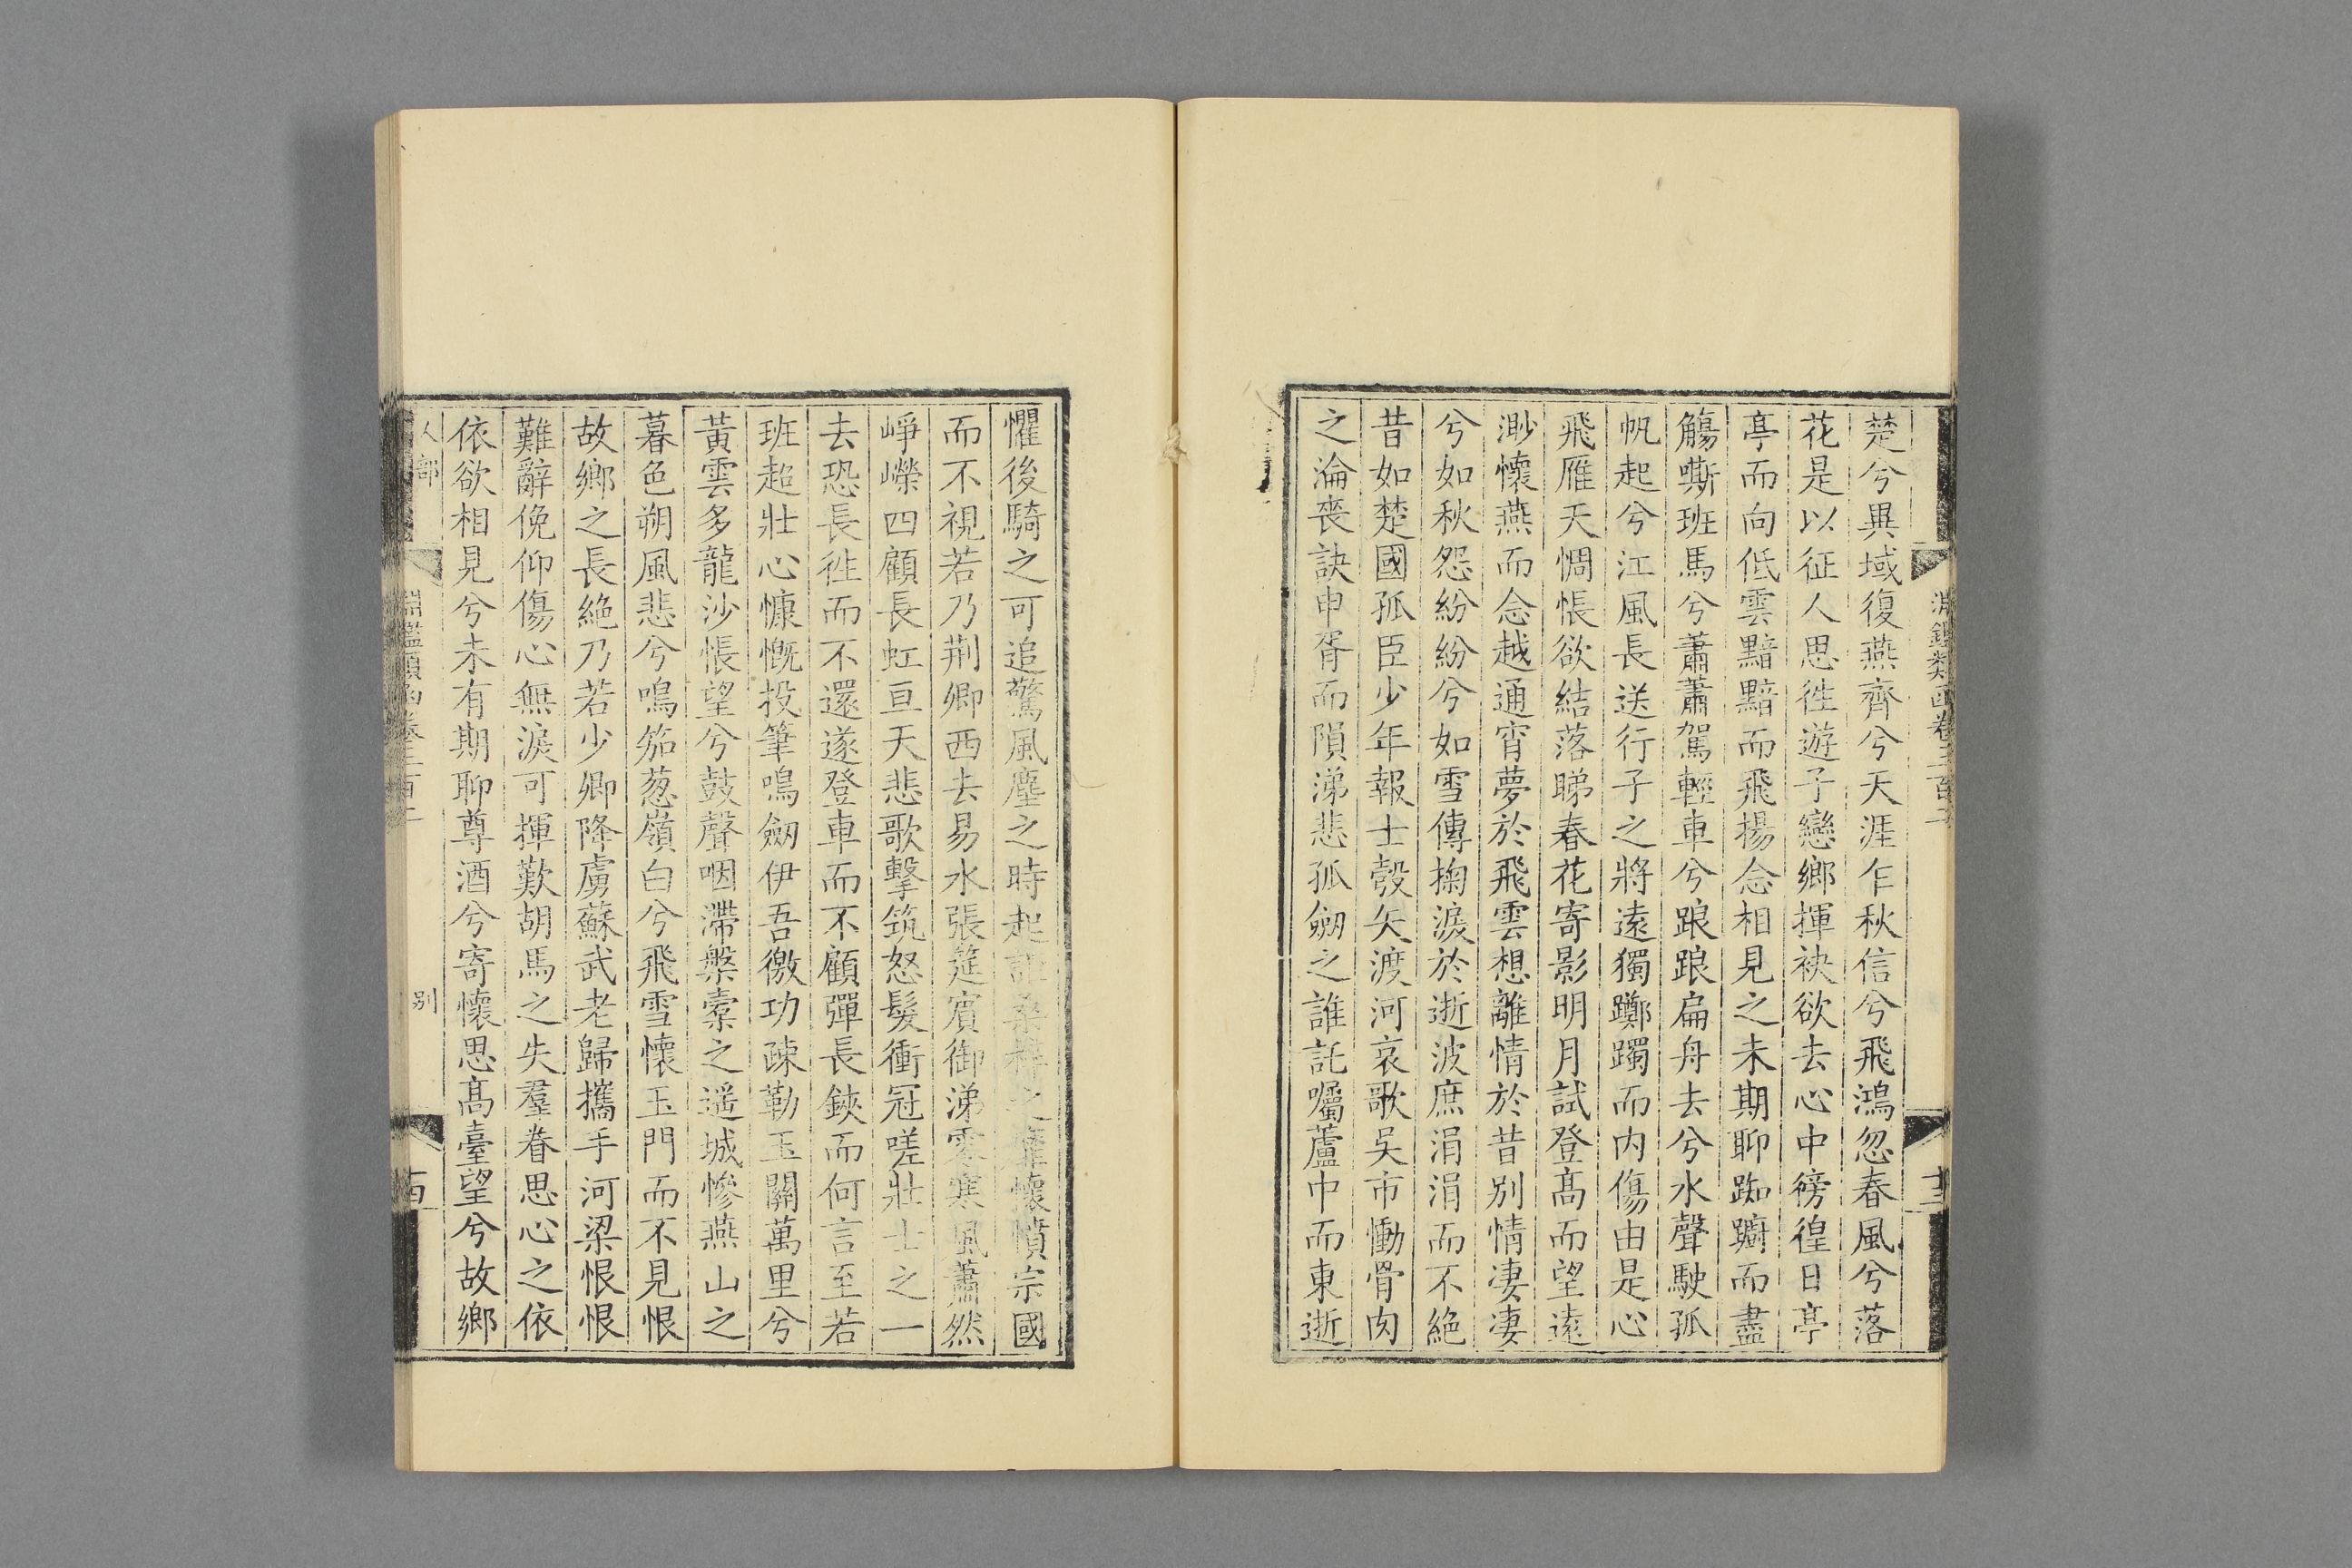 楚兮異域復燕齊兮天涯乍秋信兮飛鴻忽春風兮落
花是以征人思徃遊子戀鄉揮袂欲去心中徬徨日亭
亭而向低雲黯黯而飛揚念相見之未期聊踟躕而盡
觴嘶班馬兮蕭蕭駕輕車兮踉踉扁舟去兮水聲駛孤
帆起兮江風長送行子之將遠獨躑躅而內傷由是心
飛雁天惆悵欲結落睇春花寄影明月試登髙而望遠
渺懷燕而念越通宵夢於飛雲想離情於昔別情凄凄
兮如秋怨紛紛兮如雪傳掬淚於逝波庶涓涓而不絶
昔如楚國孤臣少年報士彀矢渡河哀歌吳市慟骨肉
之淪喪訣申胥而隕涕悲孤劒之誰託囑蘆中而東逝
懼後騎之可追驚風塵之時起 懷憤宗國
而不視若乃荆卿西去易水張筵賓御涕零寒風蕭然
崢嶸四顧長虹亘天悲歌擊筑怒髮衝冠嗟壯士之一
去恐長徃而不還遂登車而不顧彈長鋏而何言至若
班超壯心慷慨投筆鳴劒伊吾徼功疎勒玉關萬里兮
黃雲多龍沙悵望兮鼓聲咽滯槃橐之遥城慘燕山之
暮色朔風悲兮鳴笳葱嶺白兮飛雪懷玉門而不見恨
故鄉之長絶乃若少卿降虜蘇武老歸攜手河梁恨恨
難辭俛仰傷心無淚可揮歎胡馬之失羣眷思心之依
依欲相見兮未有期聊尊酒兮寄懷思髙臺望兮故鄉
人部
淵鑑類函卷三百二
別